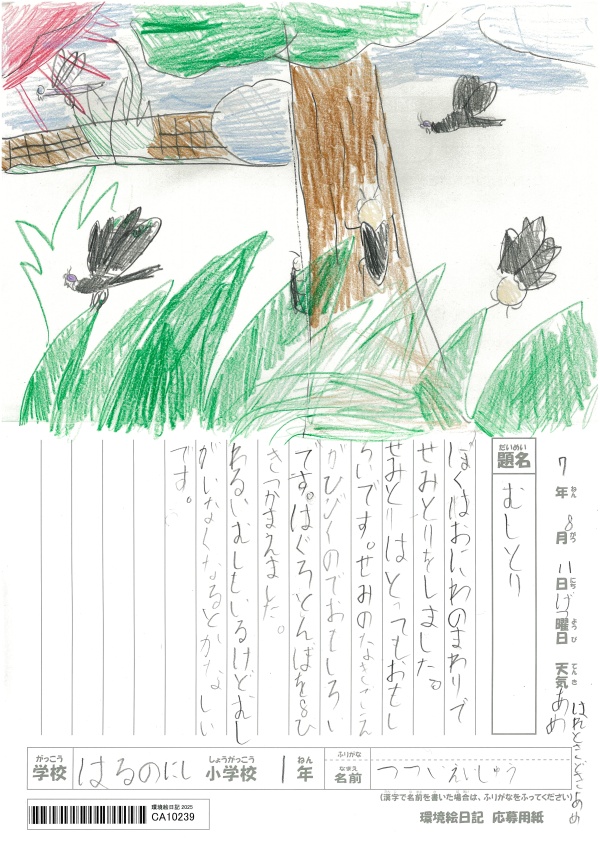 7年ねん8月がつ11日にちげつ曜日ようび 天気てんき あめ
はれときどきあめ
題名だいめい むしとり
ぼくはおにわのまわりで
せみとりをしました。
せみとりはとってもおもし
ろいです。せみのなきごえ
がひびくのでおもしろい
です。はぐろとんぼを8ひ
きつかまえました。
わるいむしもいるけどむし
がいなくなるとかなしい
です。
学校がっこう はるのにし 小学校しょうがっこう 1年ねん
ふりがな
名前なまえ つついえいしゅう
(漢字で名前を書いた場合は、ふりがなをふってください)
環境絵日記 応募用紙
環境絵日記 2025
CA10239